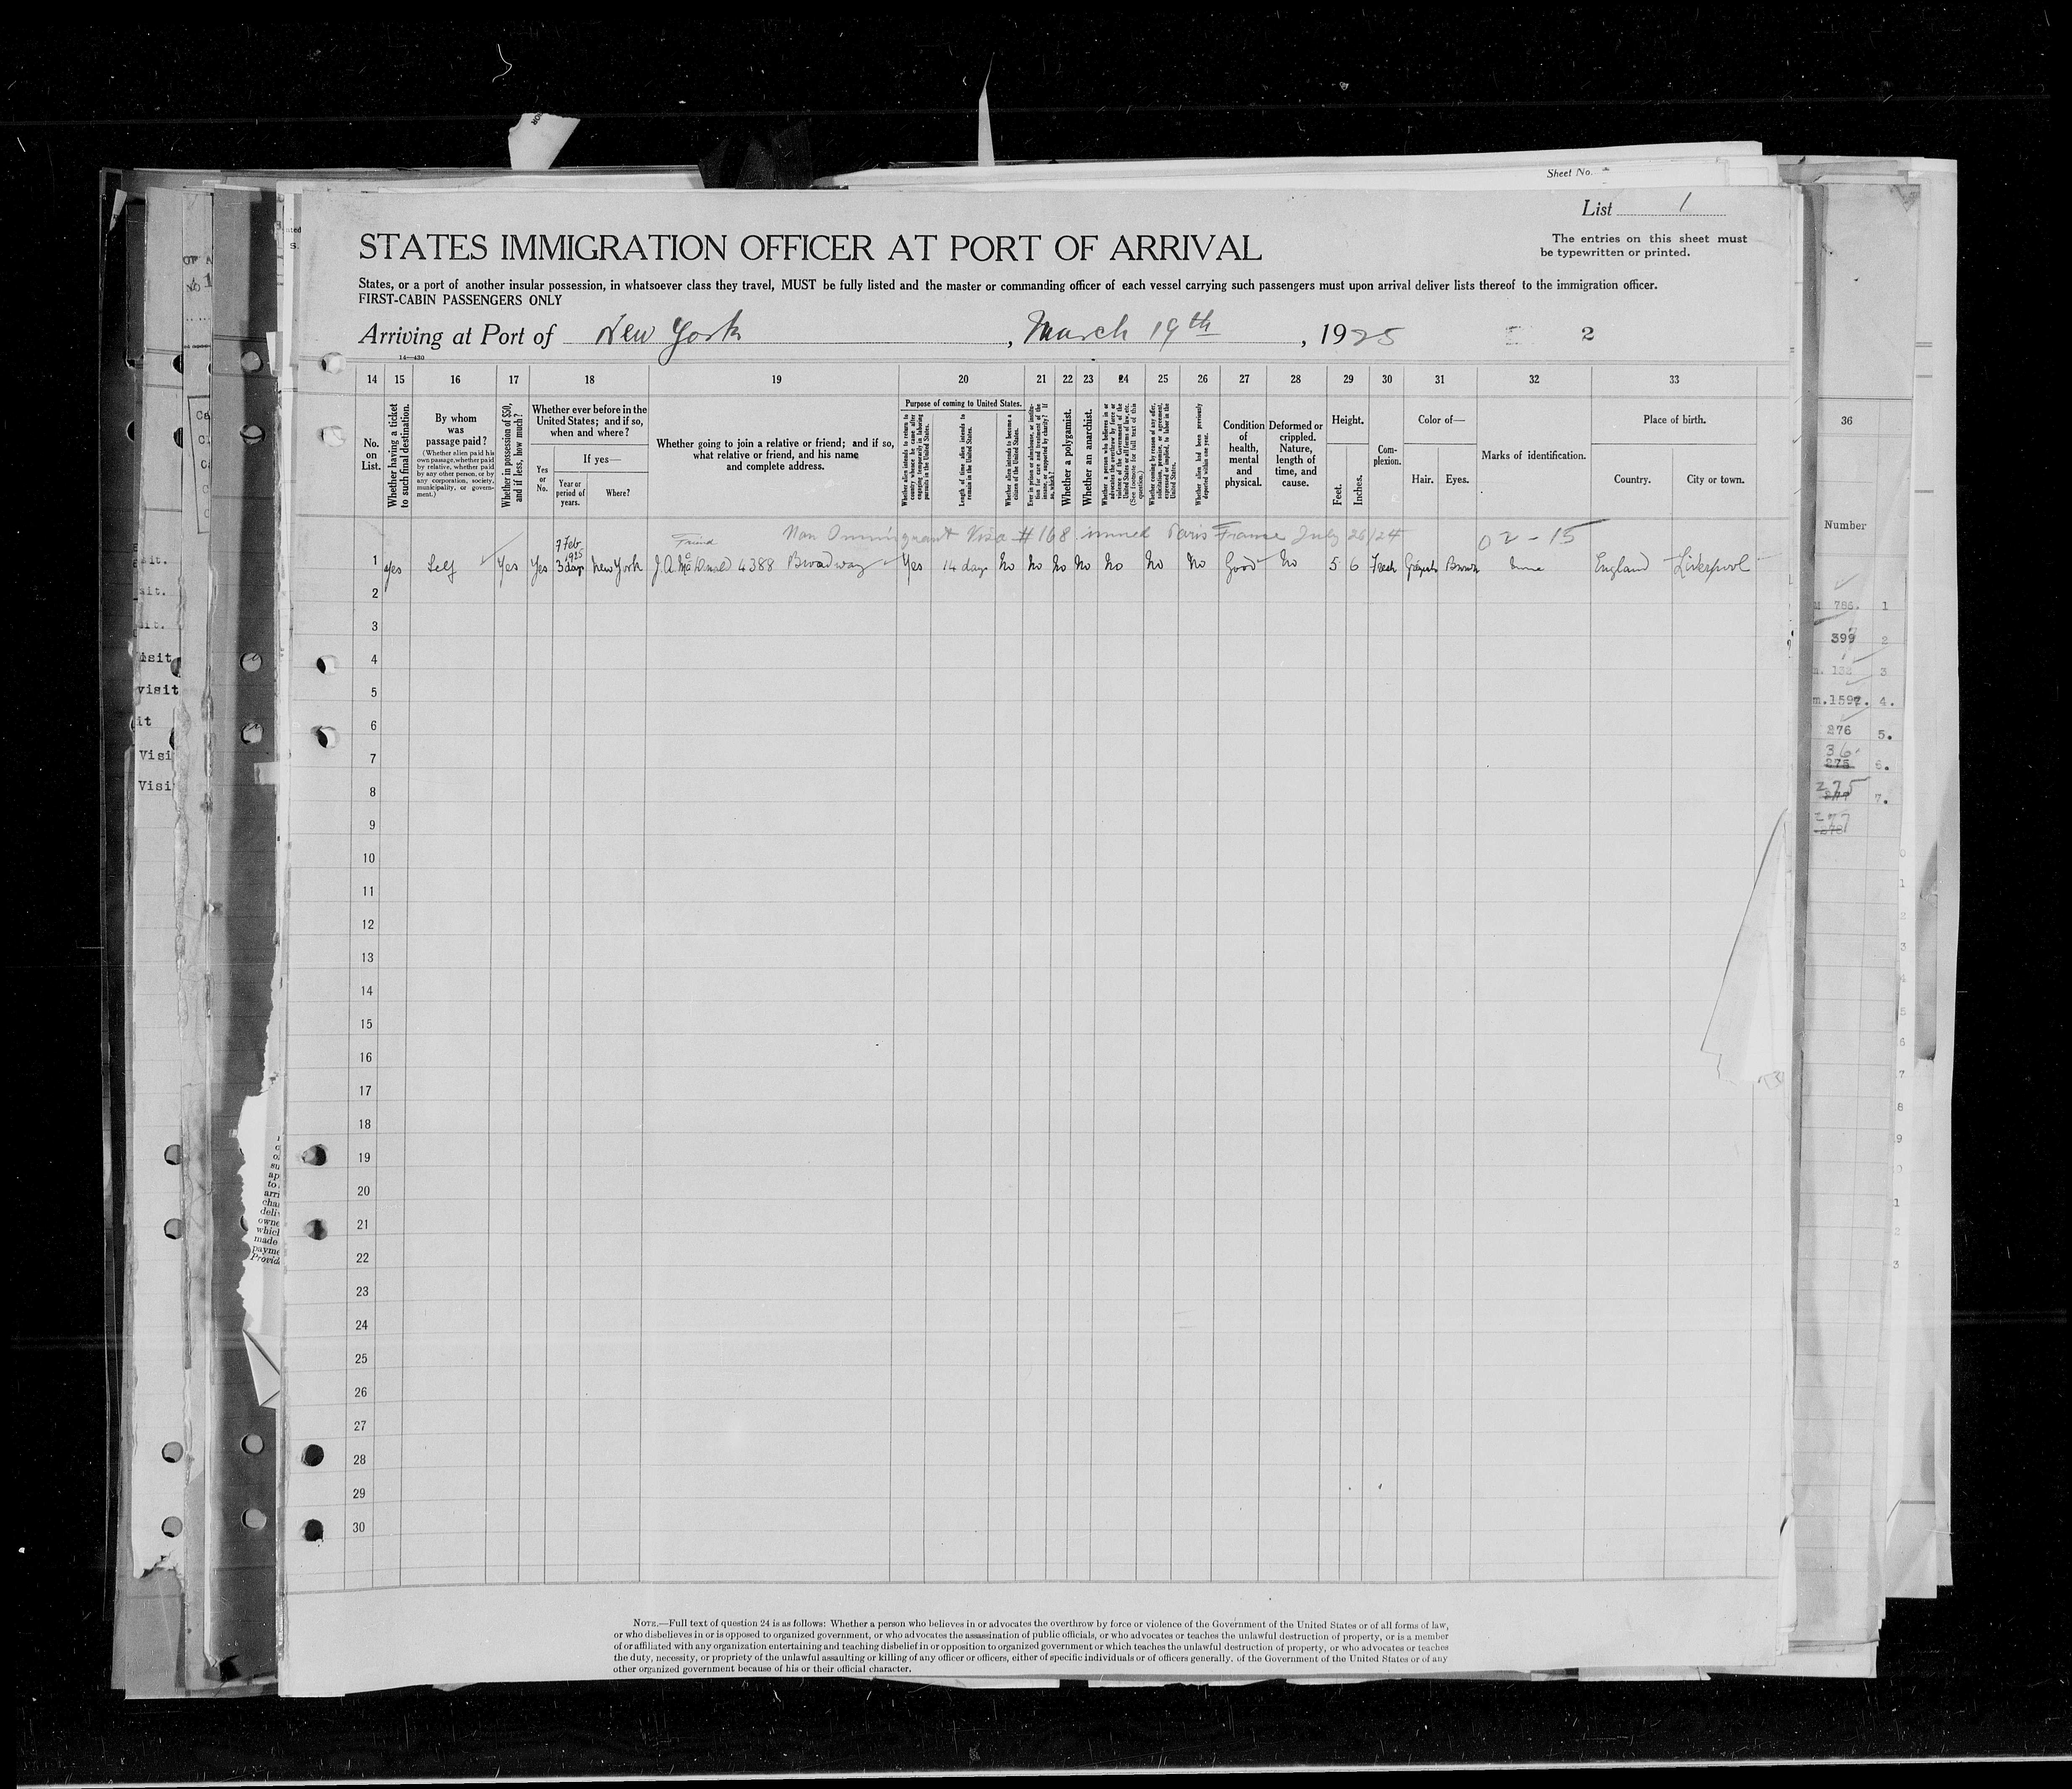 Sheet No.
List 1
STATES IMMIGRATION OFFICER AT PORT OF ARRIVAL
The entries on this sheet must
be typewritten or printed.
States, or a port of another insular possession, in whatsoever class they travel, MUST be fully listed and the master or commanding officer of each vessel carrying such passengers must upon arrival deliver lists thereof to the immigration officer.
FIRST-CABIN PASSENGERS ONLY
Arriving at Port of New York, March 19th, 1925 2
14—430
14 15 16 17 18 19 20 21 22 23 24 25 26 27 28 29 30 31 32 33
No. on List.
Whether having a ticket to such final destination.
By whom was passage paid?
(Whether alien paid his own passage, whether paid by relative, whether paid by any other person, or by any corporation, society, municipality, or government.)
Whether in possession of $50, and if less, how much?
Whether ever before in the United States; and if so, when and where?
Yes or No.
If yes—
Year or period of years.
Where?
Whether going to join a relative or friend; and if so, what relative or friend, and his name and complete address.
Purpose of coming to United States.
Whether alien intends to return to country whence he came after engaging temporarily in laboring pursuits in the United States.
Length of time alien intends to remain in the United States.
Whether alien intends to become a citizen of the United States.
Ever in prison or almshouse, or institution for care and treatment of the insane, or supported by charity? If so, which?
Whether a polygamist.
Whether an anarchist.
Whether a person who believes in or advocates the overthrow by force or violence of the Government of the United States or all forms of law, etc. (See footnote for full text of this question.)
Whether coming by reason of any offer, solicitation, promise, or agreement, expressed or implied, to labor in the United States.
Whether alien had been previously deported within one year.
Condition of health, mental and physical.
Deformed or crippled. Nature, length of time, and cause.
Height.
Feet. Inches.
Complexion.
Color of—
Hair. Eyes.
Marks of identification.
Place of birth.
Country. City or town.
Non Immigrant Visa #168 issued Paris France July 26/24
02-15
1 yes Self Yes Yes 7 Feb 1925 3 days New York Friend J.A. 4388 Broadway Yes 14 days No No No No No No No Good No 5 6 Fresh Brown None England Liverpool
2
3
4
5
6
7
8
9
10
11
12
13
14
15
16
17
18
19
20
21
22
23
24
25
26
27
28
29
30
NOTE.—Full text of question 24 is as follows: Whether a person who believes in or advocates the overthrow by force or violence of the Government of the United States or of all forms of law,
or who disbelieves in or is opposed to organized government, or who advocates the assassination of public officials, or who advocates or teaches the unlawful destruction of property, or is a member
of or affiliated with any organization entertaining and teaching disbelief in or opposition to organized government or which teaches the unlawful destruction of property, or who advocates or teaches
the duty, necessity, or propriety of the unlawful assaulting or killing of any officer or officers, either of specific individuals or of officers generally, of the Government of the United States or of any
other organized government because of his or their official character.
visit
Visi
Visi
36
Number
786. 1
399 2
3
m.1597. 4.
276 5.
36
275 6.
275
277 7.
277
278